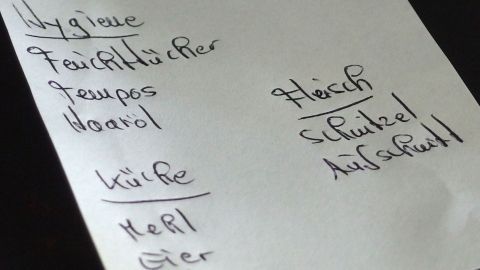 Hygiene
Feuchttücher
Tempos
Haaröl
Küche
Mehl
Eier
Fleisch
Schnitzel
Aufschnitt